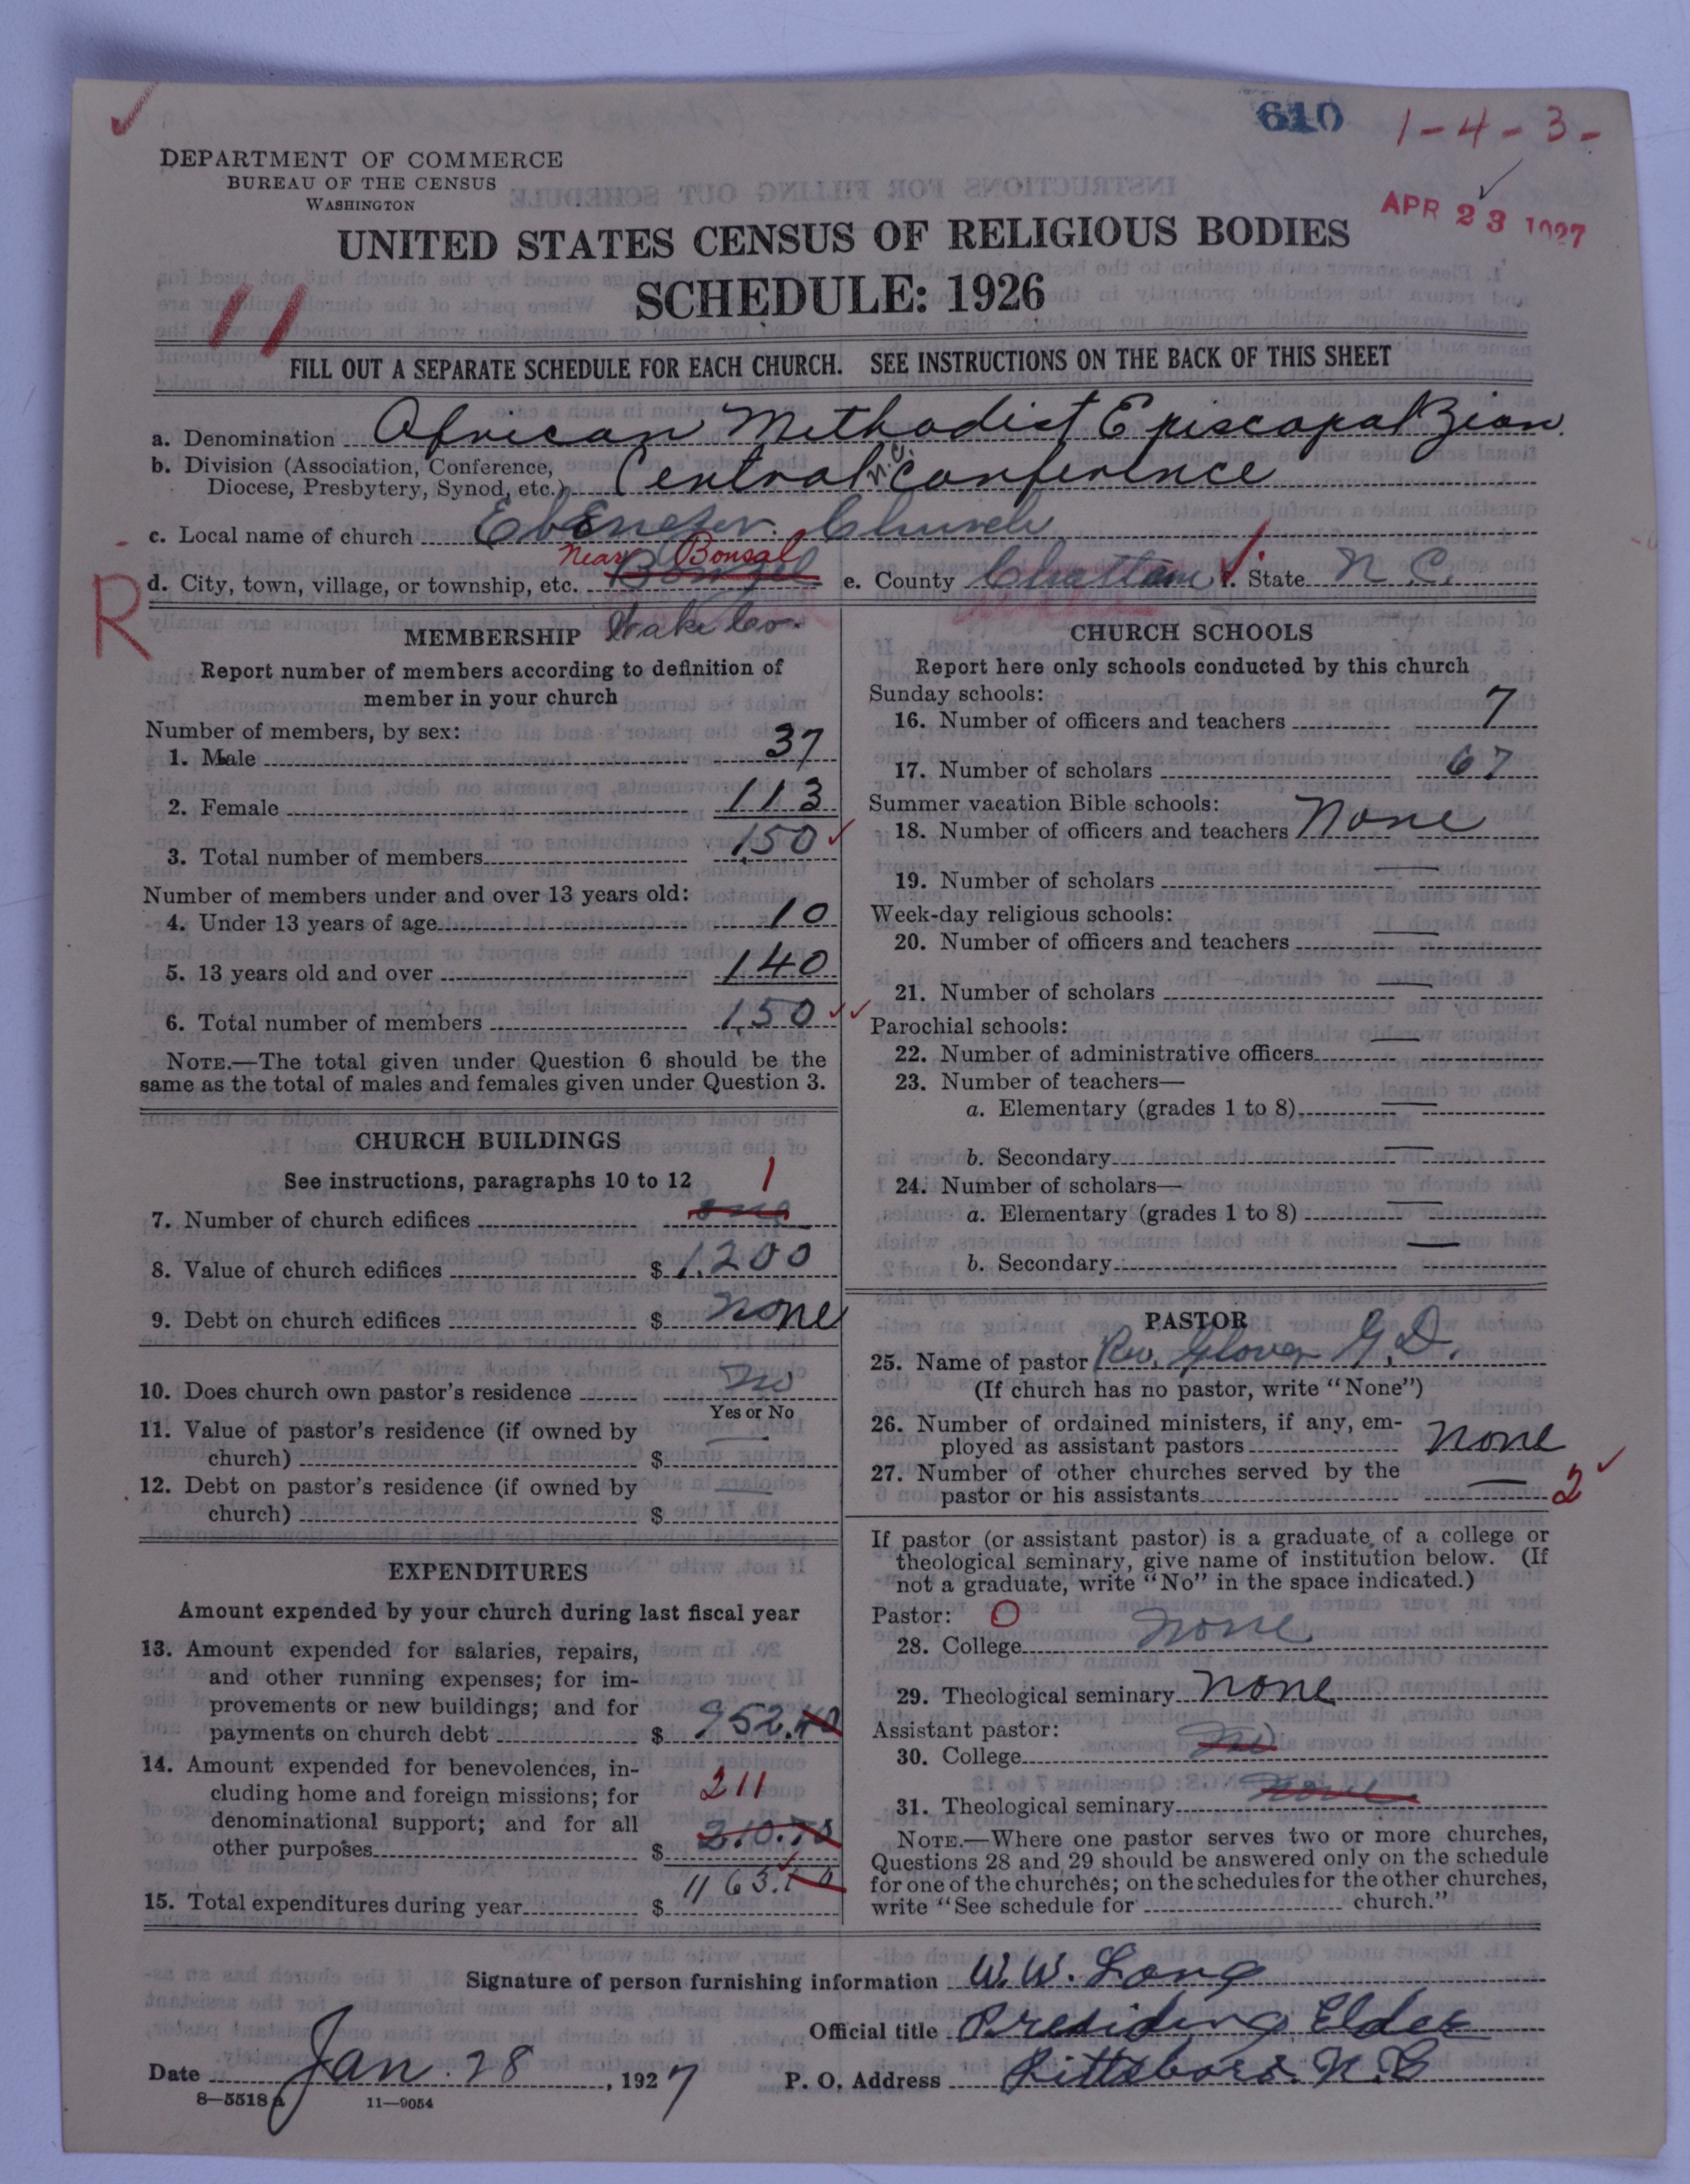 610
1-4-3-
DEPARTMENT OF COMMERCE
BUREAU OF THE CENSUS
WASHINGTON
APR 23 1927
UNITED STATES CENSUS OF RELIGIOUS BODIES
SCHEDULE: 1926
11
FILL OUT A SEPARATE SCHEDULE FOR EACH CHURCH. SEE INSTRUCTIONS ON THE BACK OF THIS SHEET
a. Denomination African Methodist Episcopal Zion
b. Division (Association, Conference,
Diocese, Presbytery, Synod, etc.) Central N.C. Conference
c. Local name of church Ebenezer Church
Near Bonsal
d. City, town, village, or township, etc. e. County Chatham f. State N C.
R
Wake Co.
MEMBERSHIP
Report number of members according to definition of
member in your church
Number of members, by sex:
1. Male 37
2. Female 113
3. Total number of members 150
Number of members under and over 13 years old:
4. Under 13 years of age 10
5. 13 years old and over 140
6. Total number of members 150
NOTE.—The total given under Question 6 should be the
same as the total of males and females given under Question 3.
CHURCH BUILDINGS
See instructions, paragraphs 10 to 12
1
7. Number of church edifices one
8. Value of church edifices $ 1200
9. Debt on church edifices $ none
10. Does church own pastor's residence No
Yes or No
11. Value of pastor's residence (if owned by
church) $
12. Debt on pastor's residence (if owned by
church) $
EXPENDITURES
Amount expended by your church during last fiscal year
13. Amount expended for salaries, repairs,
and other running expenses; for im-
provements or new buildings; and for
payments on church debt $ 952.40
14. Amount expended for benevolences, in-
cluding home and foreign missions; for 211
denominational support; and for all
other purposes $ 210.70
15. Total expenditures during year $ 1163.10
CHURCH SCHOOLS
Report here only schools conducted by this church
Sunday schools:
16. Number of officers and teachers 7
17. Number of scholars 67
Summer vacation Bible schools:
18. Number of officers and teachers None
19. Number of scholars —
Week-day religious schools:
20. Number of officers and teachers —
21. Number of scholars —
Parochial schools:
22. Number of administrative officers —
23. Number of teachers—
a. Elementary (grades 1 to 8) —
b. Secondary —
24. Number of scholars—
a. Elementary (grades 1 to 8) —
b. Secondary —
PASTOR
25. Name of pastor Rev. Glover G. D.
(If church has no pastor, write "None")
26. Number of ordained ministers, if any, em-
ployed as assistant pastors none
27. Number of other churches served by the
pastor or his assistants — 2
If pastor (or assistant pastor) is a graduate of a college or
theological seminary, give name of institution below. (If
not a graduate, write "No" in the space indicated.)
Pastor: O
28. College none
29. Theological seminary none
Assistant pastor:
30. College No
31. Theological seminary none
NOTE.—Where one pastor serves two or more churches,
Questions 28 and 29 should be answered only on the schedule
for one of the churches; on the schedules for the other churches,
write "See schedule for church."
Signature of person furnishing information W. W. Long
Official title Presiding Elder
Date Jan. 28, 1927 P. O. Address Pittsboro. N. C
8—5518 a 11—9054